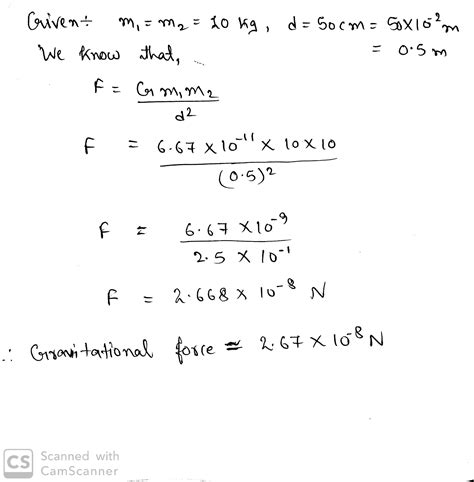 Given÷ m₁ = m₂ = 10 kg, d = 50cm = 50×10⁻² m
We know that, = 0.5 m
F = G m₁m₂ / d²
F = 6.67 × 10⁻¹¹ × 10 × 10 / (0.5)²
F = 6.67 × 10⁻⁹ / 2.5 × 10⁻¹
F = 2.668 × 10⁻⁸ N
∴ Gravitational force ≃ 2.67 × 10⁻⁸ N
CS Scanned with
CamScanner